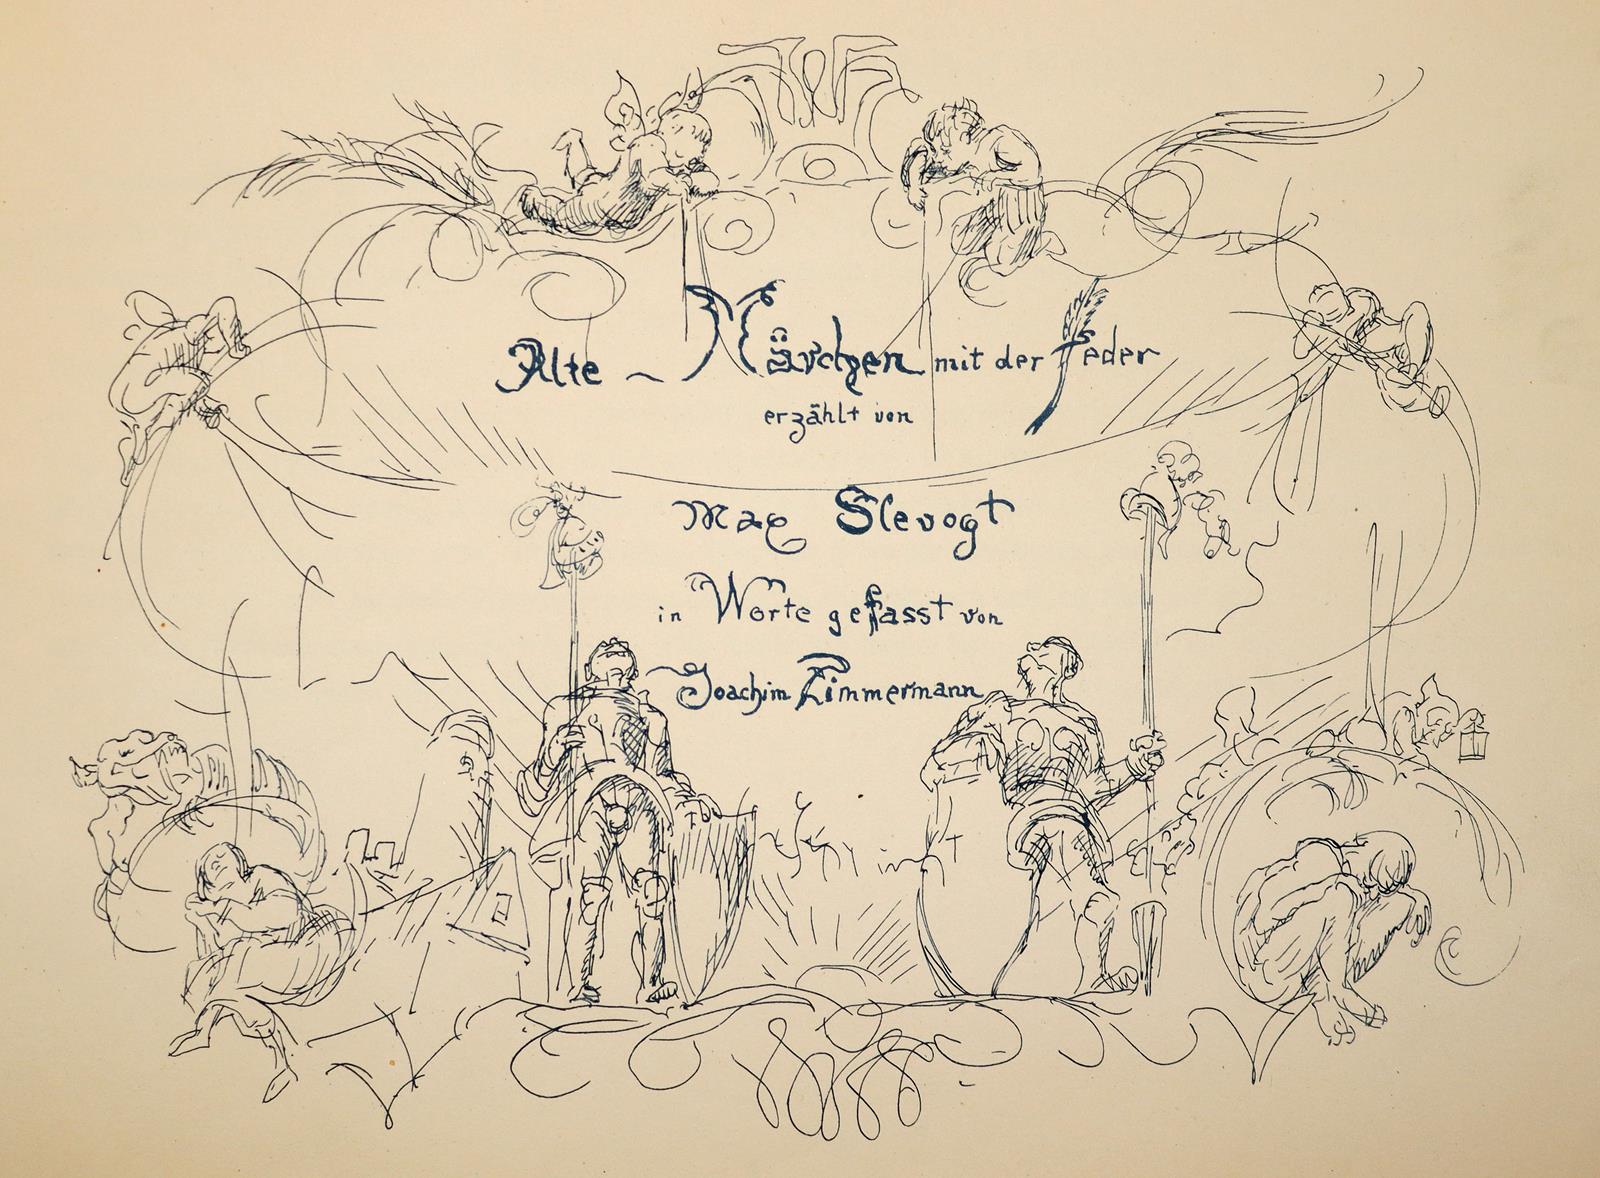 Alte Märchen mit der Feder
erzählt von
Max Slevogt
in Worte gefasst von
Joachim Zimmermann